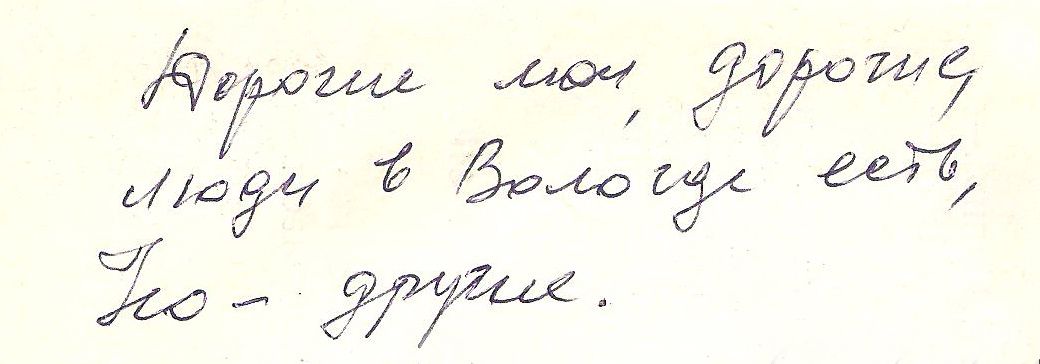 Дорогие мои, дорогие,
люди в Вологде есть,
Но – другие.